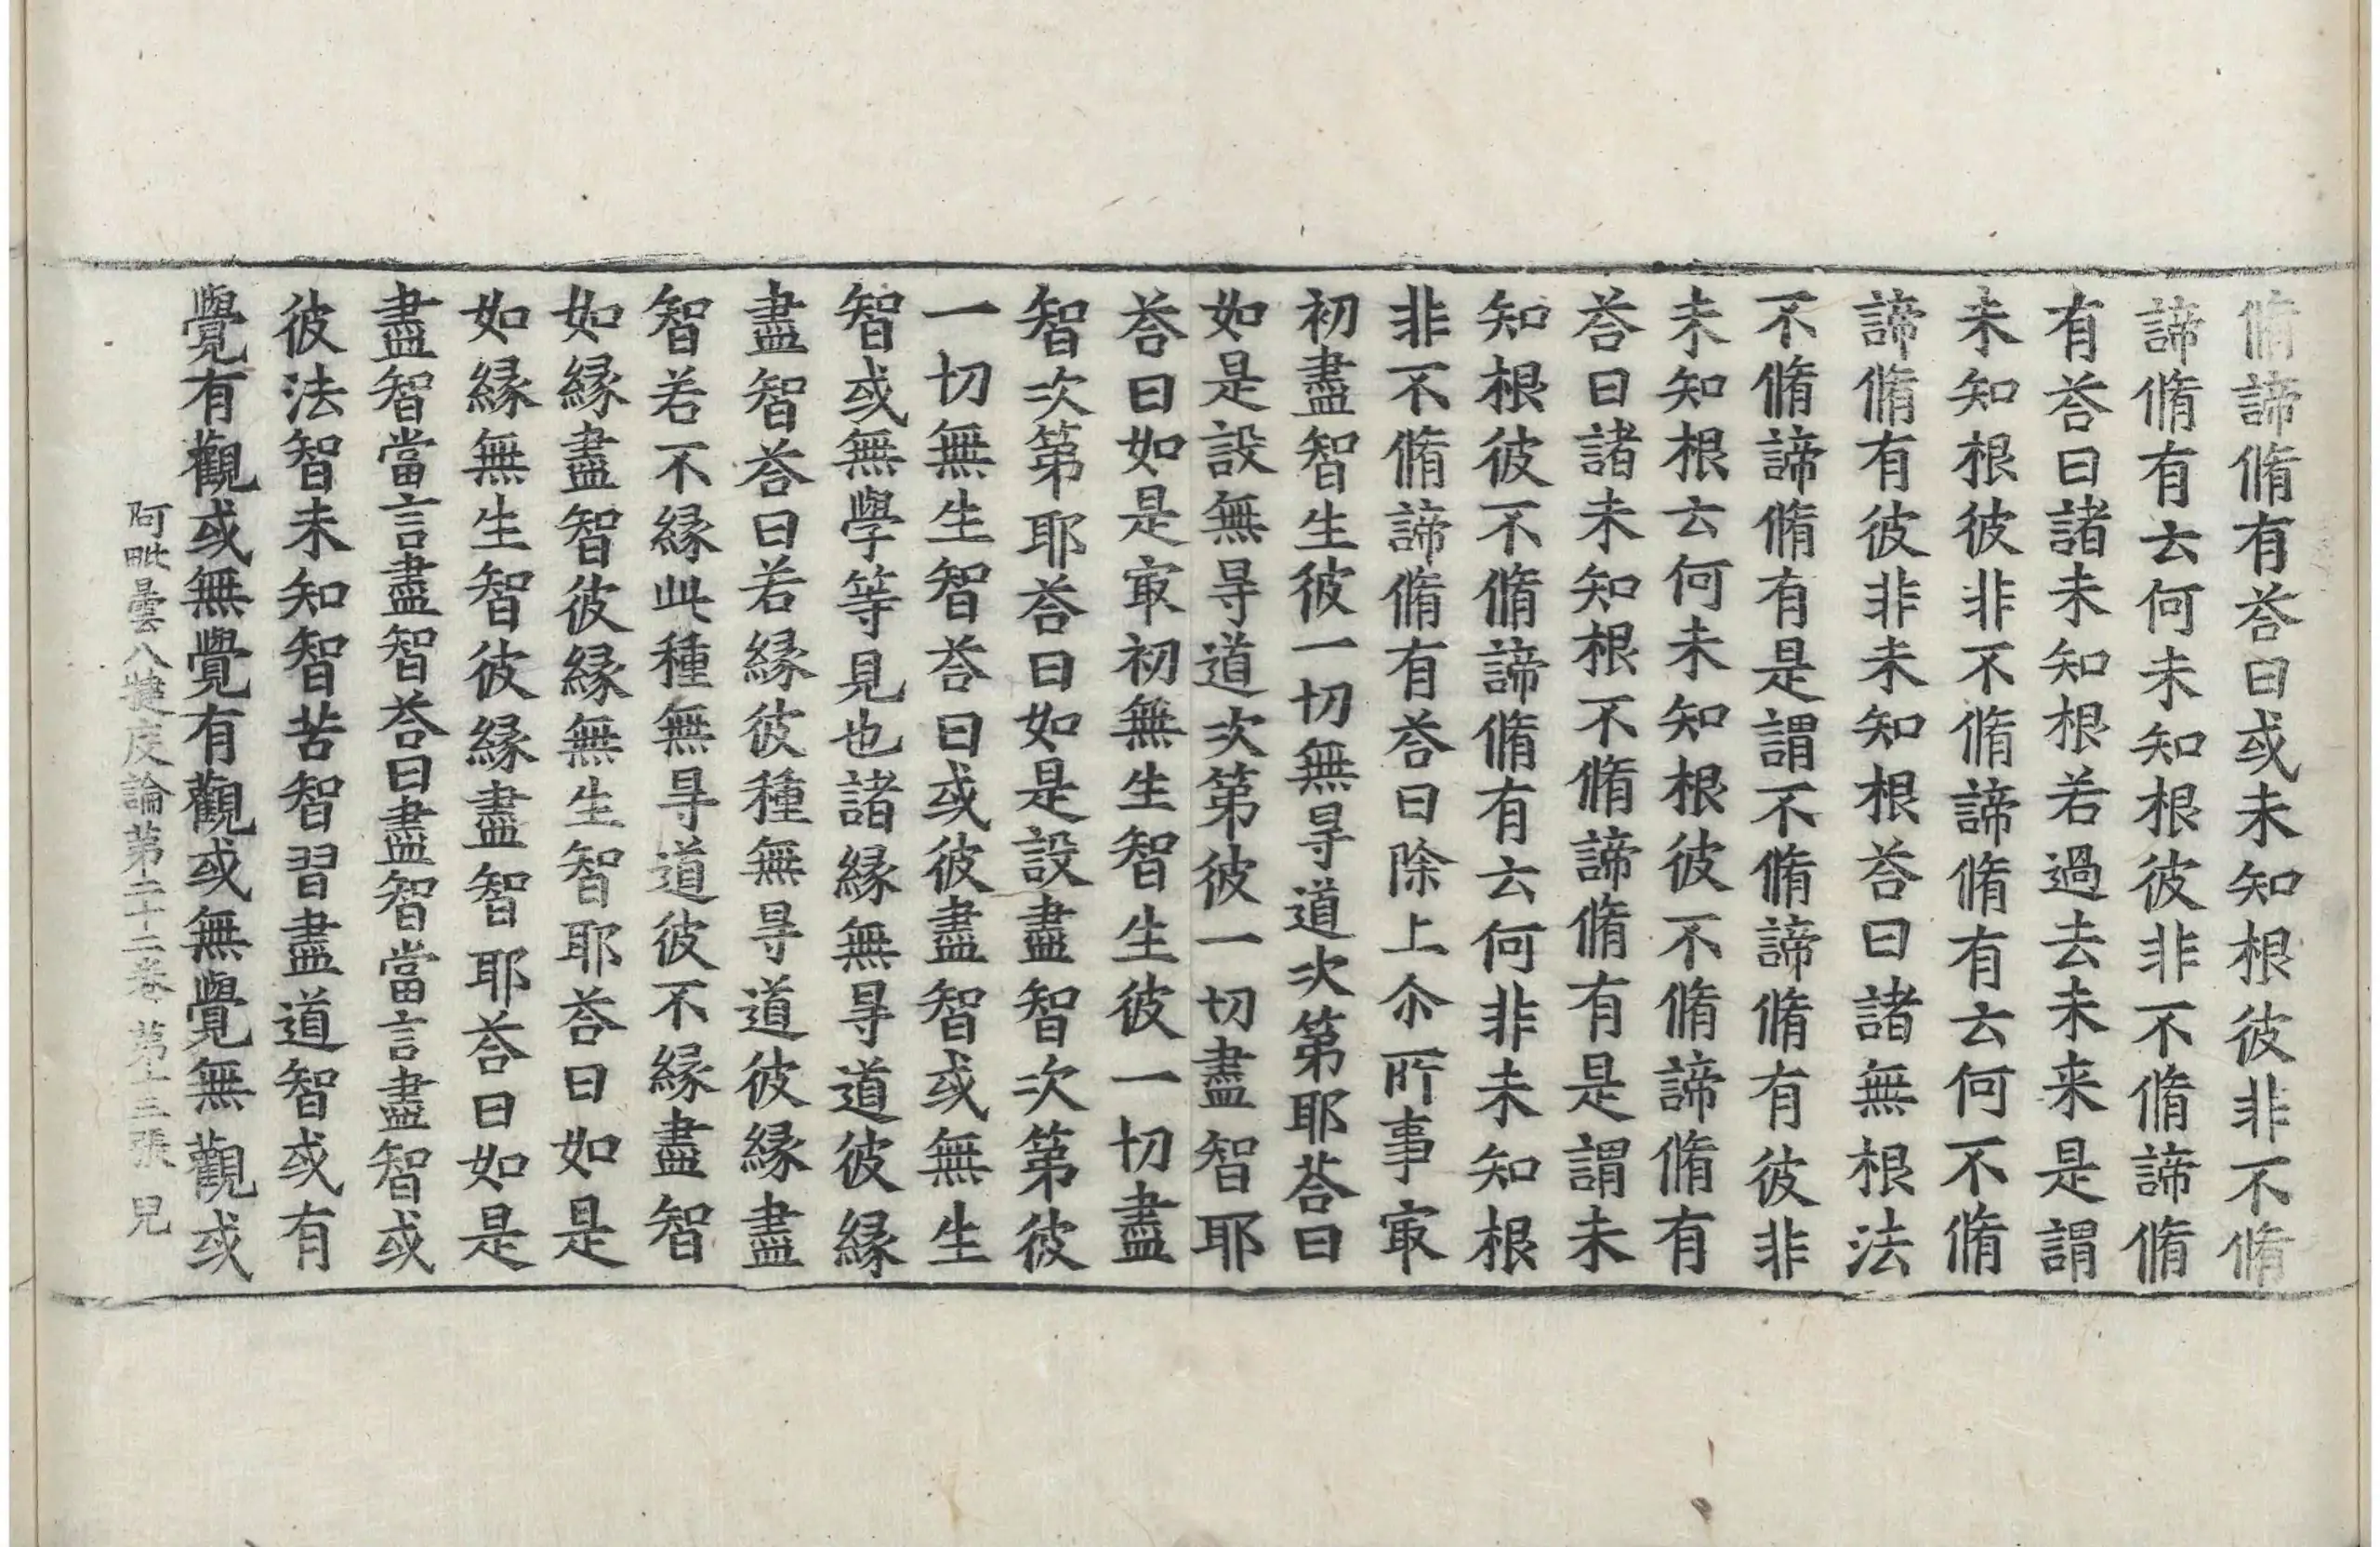 脩諦脩有荅曰或未知根彼非不脩
諦脩有云何未知根彼非不脩諦脩
有荅曰諸未知根若過去未来是謂
未知根彼非不脩諦脩有云何不脩
諦脩有彼非未知根荅曰諸無根法
不脩諦脩有是謂不脩諦脩有彼非
未知根云何未知根彼不脩諦脩有
荅曰諸未知根不脩諦脩有是謂未
知根彼不脩諦脩有云何非未知根
非不脩諦脩有荅曰除上尒所事㝡
初盡智生彼一切無㝵道次第耶荅曰
如是設無㝵道次第彼一切盡智耶
荅曰如是㝡初無生智生彼一切盡
智次第耶荅曰如是設盡智次第彼
一切無生智荅曰或彼盡智或無生
智或無學等見也諸緣無㝵道彼緣
盡智荅曰若緣彼種無㝵道彼緣盡
智若不緣此種無㝵道彼不緣盡智
如緣盡智彼緣無生智耶荅曰如是
如緣無生智彼緣盡智耶荅曰如是
盡智當言盡智荅曰盡智當言盡智或
彼法智未知智苦智習盡道智或有
覺有觀或無覺有觀或無覺無觀或
阿毗曇八揵度論第二十二卷 第十三張 皃